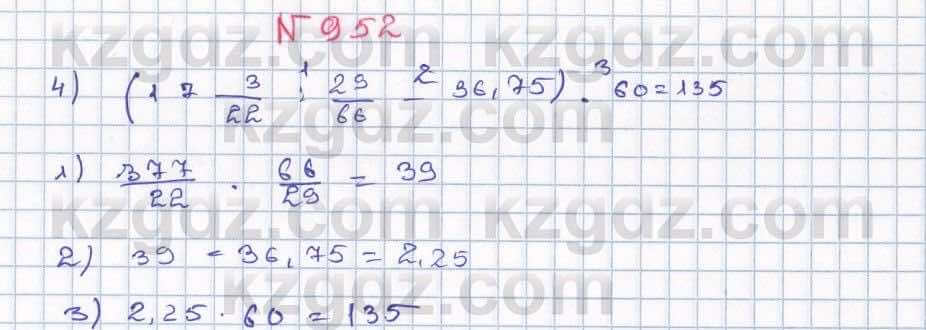 N 952
kzgdz.com kzgdz.com
4) (17 3/22 : 29/66 - 36,75) · 60 = 135
1 2 3
kzgdz.com
1) 377/22 · 66/29 = 39
kzgdz.com kzgdz.com
2) 39 - 36,75 = 2,25
kzgdz.com
3) 2,25 · 60 = 135